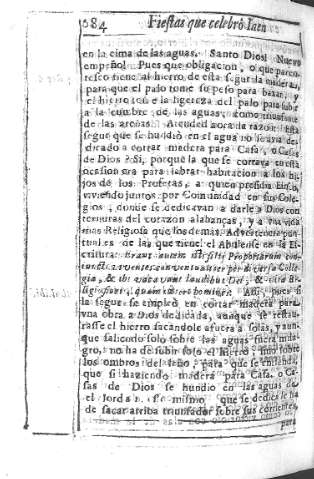 084 Fiestas que celebrò Iaen
en la cima de las aguas. Santo Dios! Nuevo
empeño! Pues que obligacion, o que paren-
tesco tiene al hierro de esta segur la madera,
para que el palo tome su peso para baxar, y
el hierro tome la ligereza del palo para subir
a la cumbre de las aguas, como
de las arenas? Atended aora da razon: Esta
segur que se hundiò en el agua no se avia de-
dicado a cortar madera para Casa, o Casas
de Dios? Si, porque la que se cortava en esta
ocasion era para labrar habitacion a los hi-
jos de los Profetas, a quien presidia Eliseo,
viviendo juntos por Comunidad en sus Cole-
gios, donde se dedicavan a darle a Dios con
ternuras del corazon alabanças, y a una vida
mas Religiosa que los demàs. Advertencia pun-
tual es de las que tiene el Abulense en la Es-
critura: Erant autem isti filij Prophetarum con-
ventus viventes per diversa Colle-
gia, & ibi vacavant laudibus Dei, &
quam homines Assi, pues a
la segur se empleò en cortar madera para
vna obra a Dios dedicada, aunque se restau-
rasse el hierro sacandole afuera a solas, y aun-
que saliendo solo sobre las aguas fuera mila-
gro, no ha de subir solo el hierro, sino sobre
los ombros del leño, para que se entienda,
que si haziendo madera para Casa, o Ca-
sas de Dios se hundio en las aguas de
el Jordan, Dios mismo que se dedicò le ha
de sacar arriba triunfador sobre sus corrientes,
para